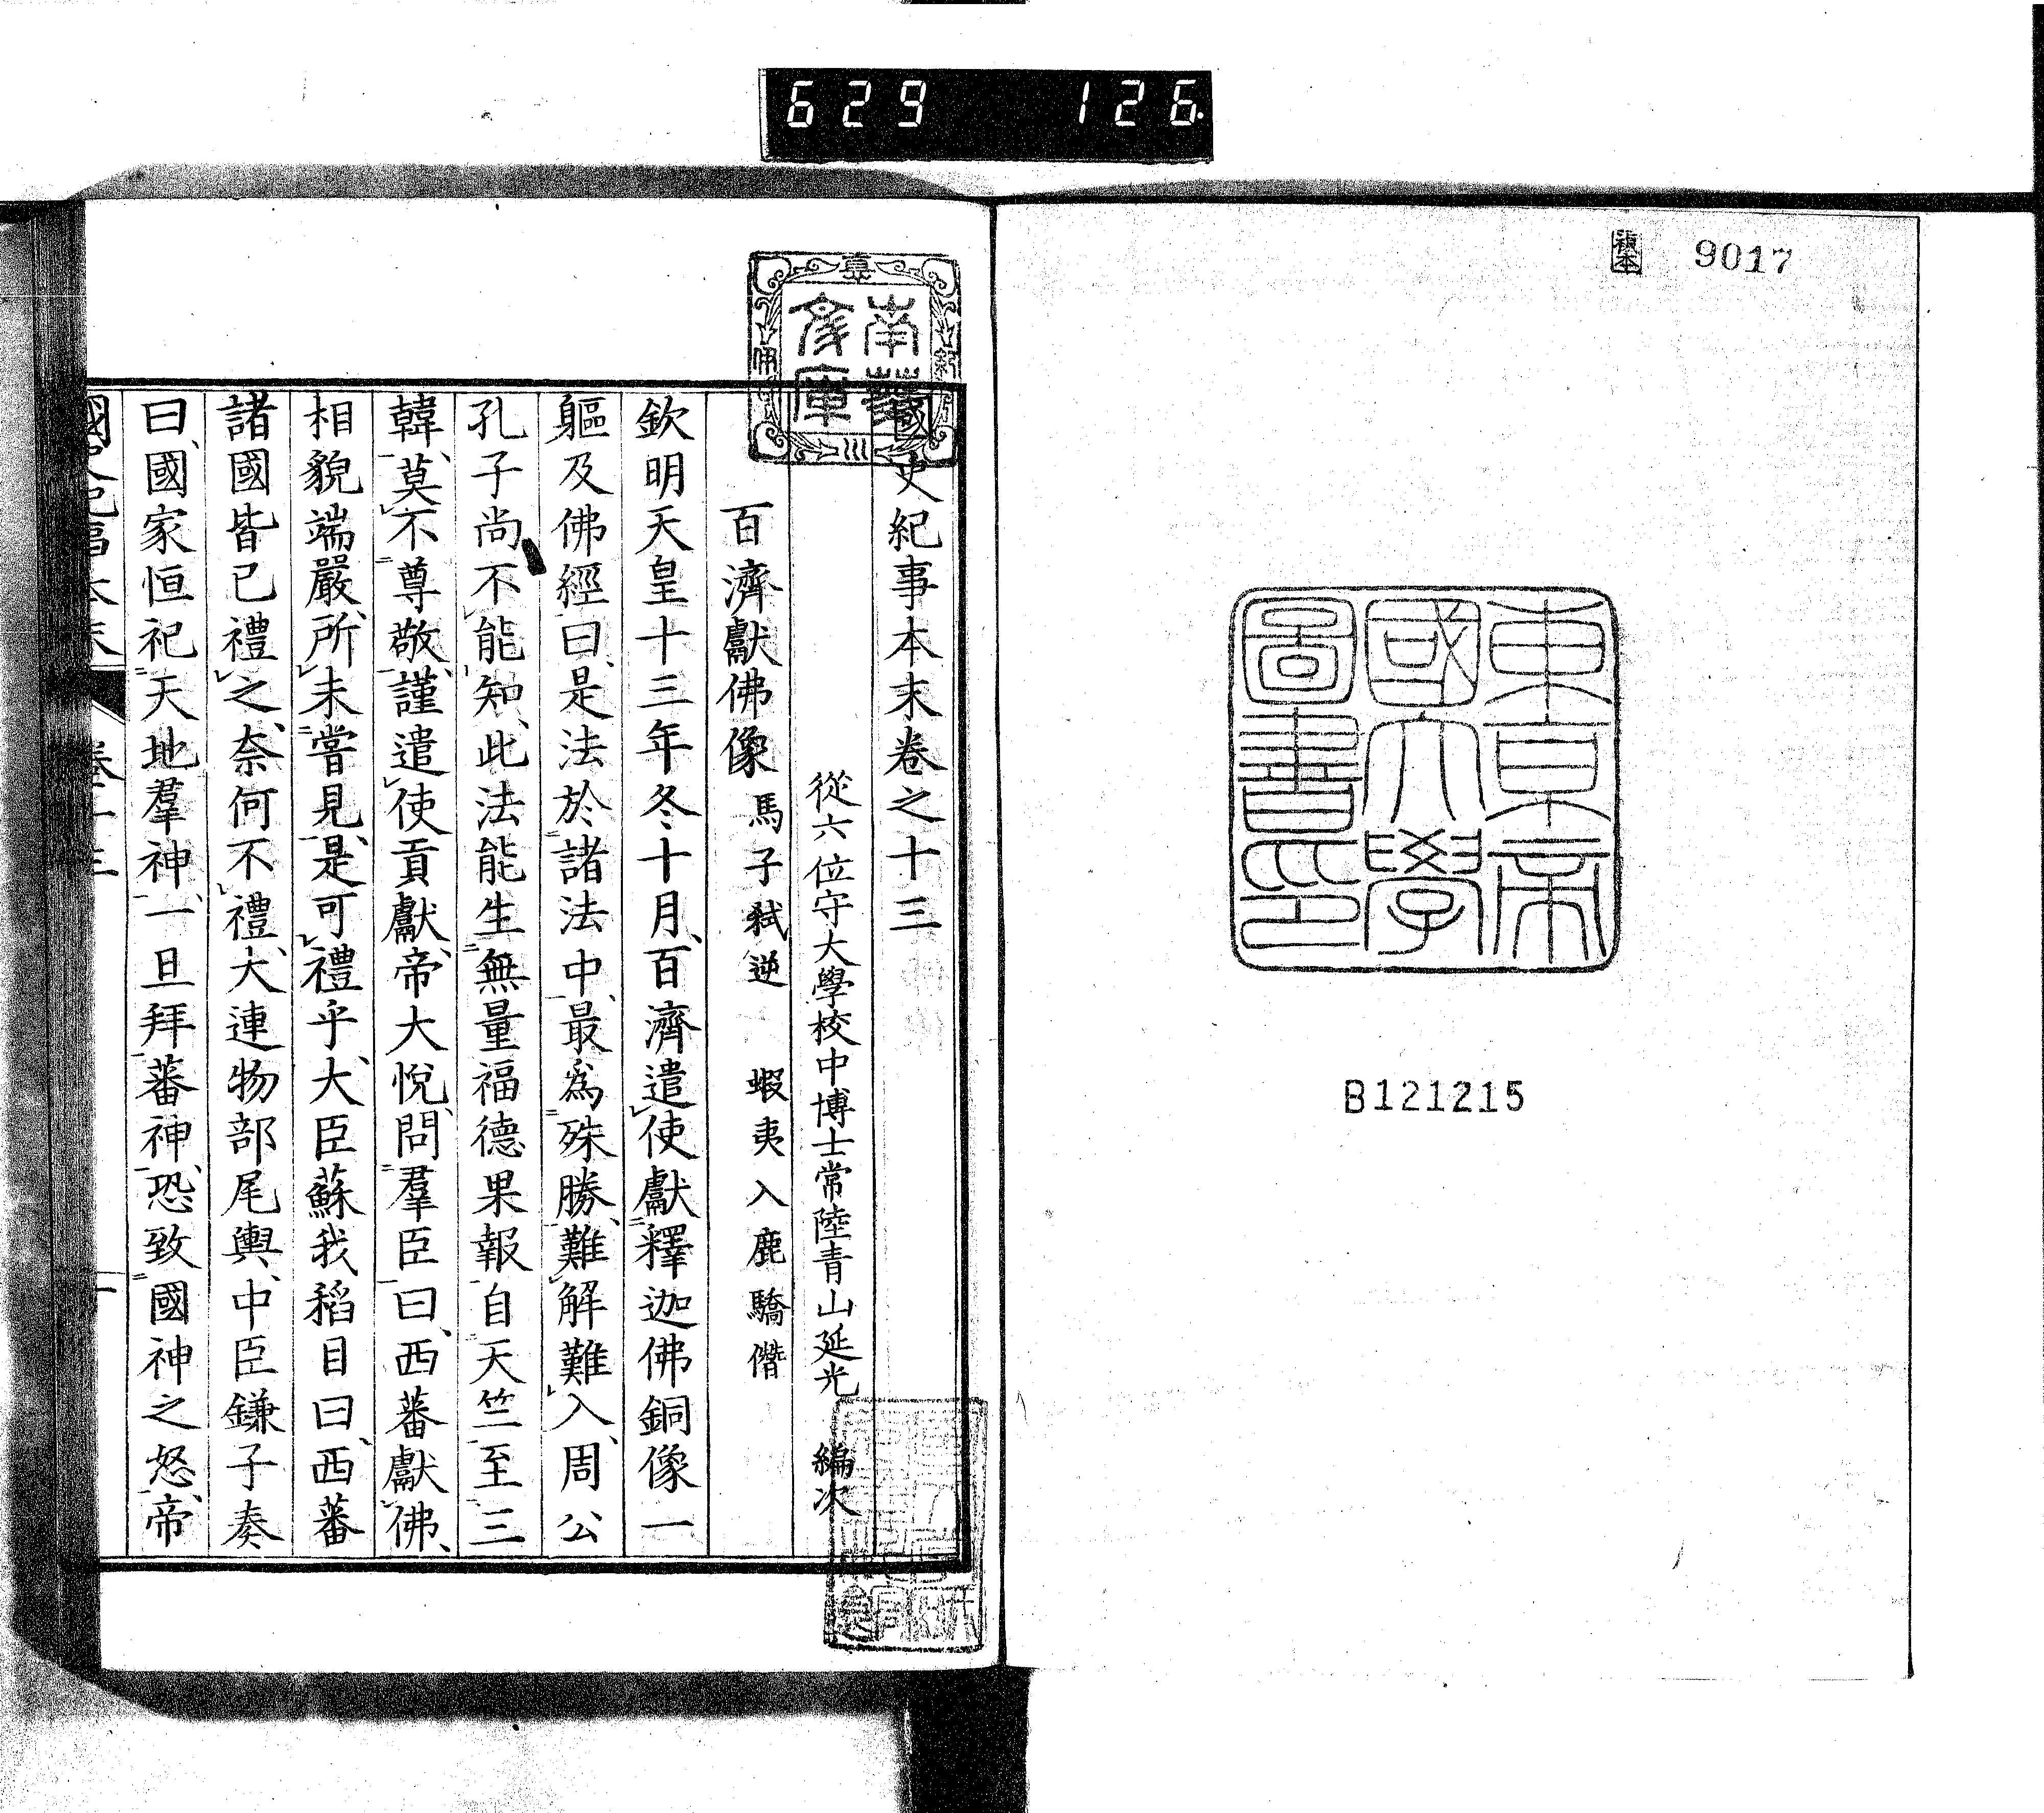 629 126
複本 9017
東京帝
國大學
圖書印
B121215
南葵
文庫
國史紀事本末卷之十三
從六位守大學校中博士常陸青山延光 編次
百濟獻佛像 馬子弑逆 蝦夷入鹿驕僭
欽明天皇十三年冬十月、百濟遣使獻釋迦佛銅像一
軀及佛經、曰、是法於諸法中、最爲殊勝、難解難入、周公
孔子尚不能知、此法能生無量福德果報、自天竺至三
韓、莫不尊敬、謹遣使貢獻、帝大悅、問羣臣曰、西蕃獻佛、
相貌端嚴、所未嘗見、是可禮乎、大臣蘇我稻目曰、西蕃
諸國皆已禮之、奈何不禮、大連物部尾輿、中臣鎌子奏
曰、國家恒祀天地羣神、一旦拜蕃神、恐致國神之怒、帝
國史紀事本末 卷十三 一